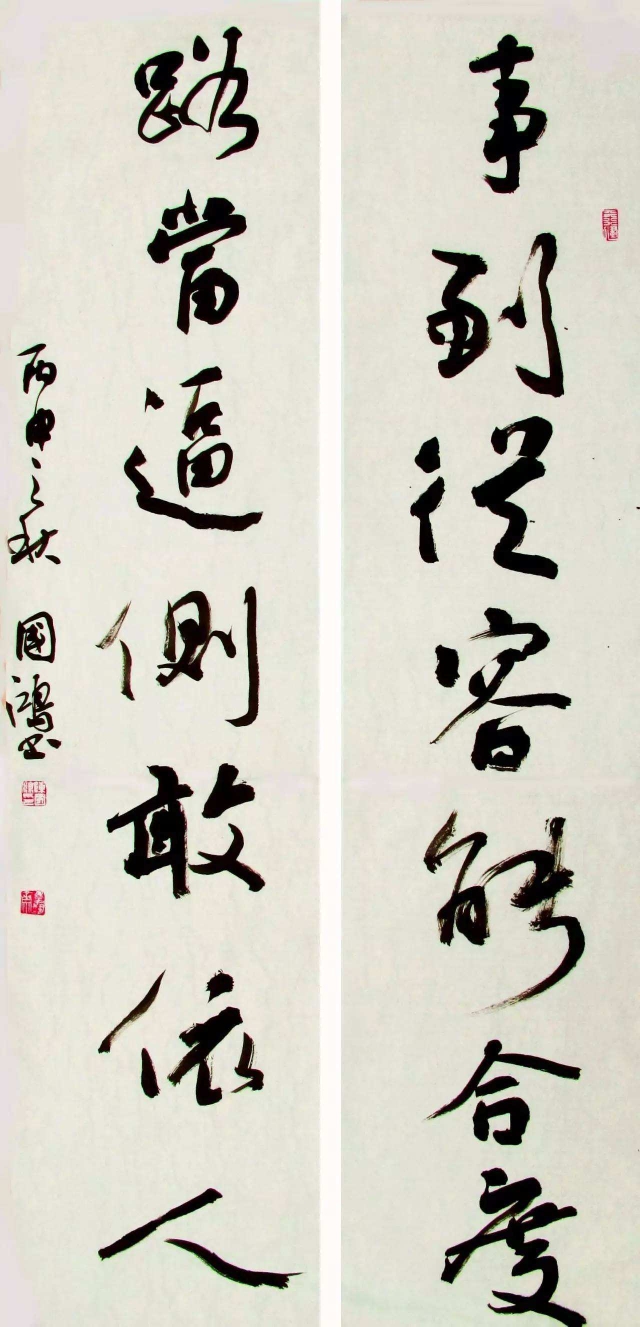 事到從容能合度
路當逼側敢依人
丙申之秋 國鴻書